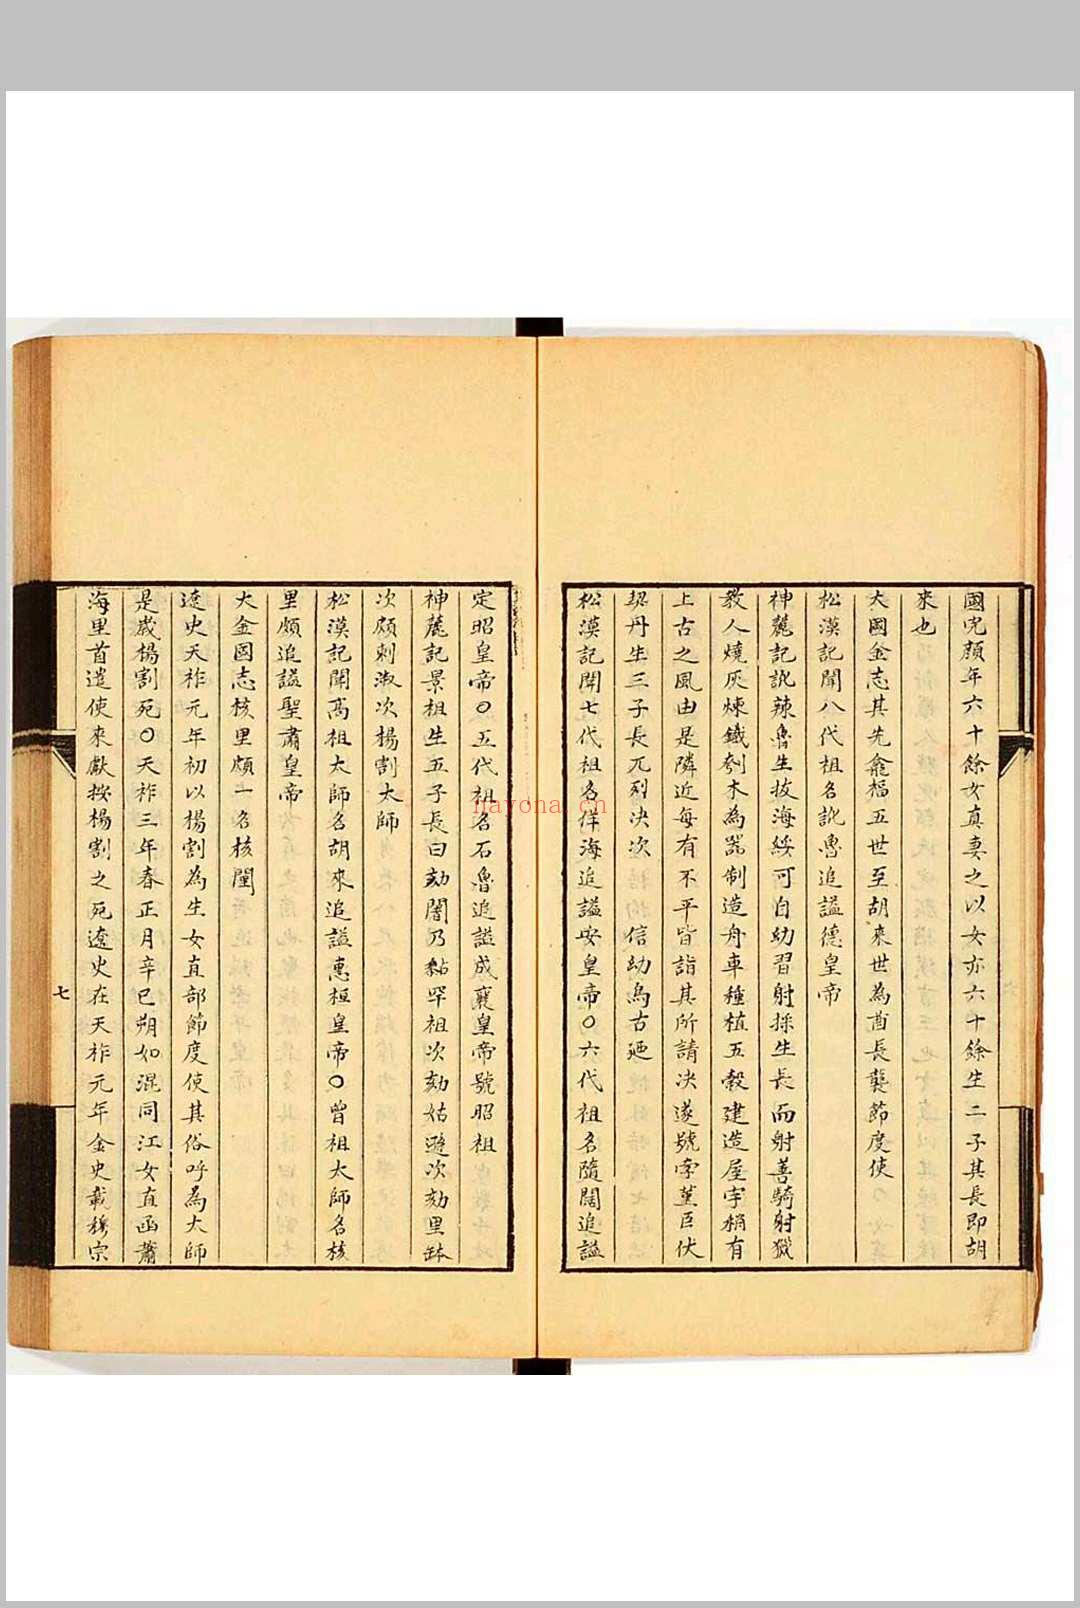 國完顏年六十餘女真妻之以女亦六十餘生二子其長即胡
來也
大國金志其先龕福五世至胡來世為酋長襲節度使
松漠記聞八代祖名訛魯追謚德皇帝
神麓記訛辣魯生拔海綏可自幼習射採生長而射善騎射獵
教人燒灰煉鐵刳木為器制造舟車種植五穀建造屋宇稍有
上古之風由是隣近每有不平皆詣其所請決遂號孛堇臣伏
契丹生三子長兀列決次捨拘信幼烏古廼
松漠記聞七代祖名佯海追謚安皇帝〇六代祖名隨闊追謚
定昭皇帝〇五代祖名石魯追謚成襄皇帝號昭祖
神麓記景祖生五子長曰劾闍乃黏罕祖次劾姑遜次劾里鉢
次頗剌淑次楊割太師
松漠記聞高祖太師名胡來追謚惠桓皇帝〇曾祖太師名核
里頗追謚聖肅皇帝
大金國志核里頗一名核閨
遼史天祚元年初以楊割為生女直部節度使其俗呼為大師
是歲楊割死〇天祚三年春正月辛巳朔如混同江女直函蕭
海里首遣使來獻按楊割之死遼史在天祚元年金史載穆宗
七
nayona.cn